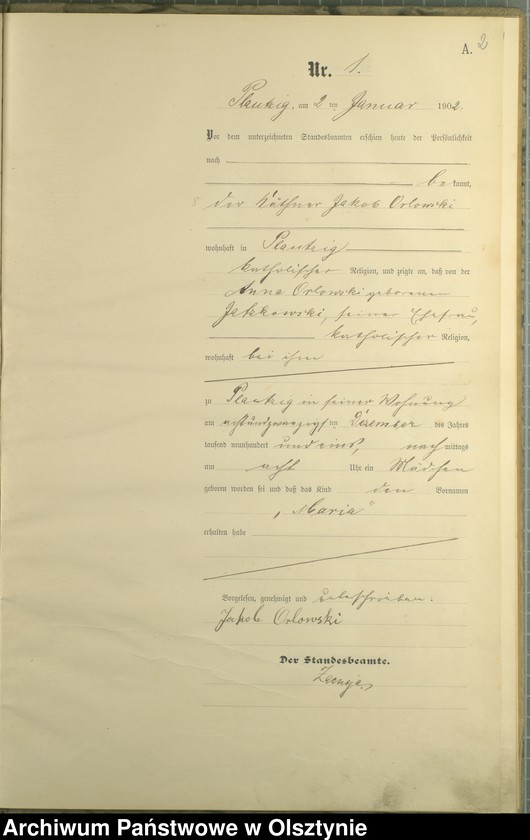 A. 2
Nr. 1.
Plautzig, am 2 ten Januar 1902.
Vor dem unterzeichneten Standesbeamten erschien heute der Persönlichkeit
nach
be kannt,
der Käthner Jakob Orlowski
wohnhaft in Plautzig
katholischer Religion, und zeigte an, daß von der
Anna Orlowski geborenen
seiner Ehefrau,
katholischer Religion,
wohnhaft bei ihm
zu Plautzig in seiner Wohnung
am achtundzwanzigsten Dezember des Jahres
tausend neunhundert und eins, nach mittags
um acht Uhr ein Mädchen
geboren worden sei und daß das Kind den Vornamen
„Maria“
erhalten habe
Vorgelesen, genehmigt und unterschrieben.
Jakob Orlowski
Der Standesbeamte.
Archiwum Państwowe w Olsztynie